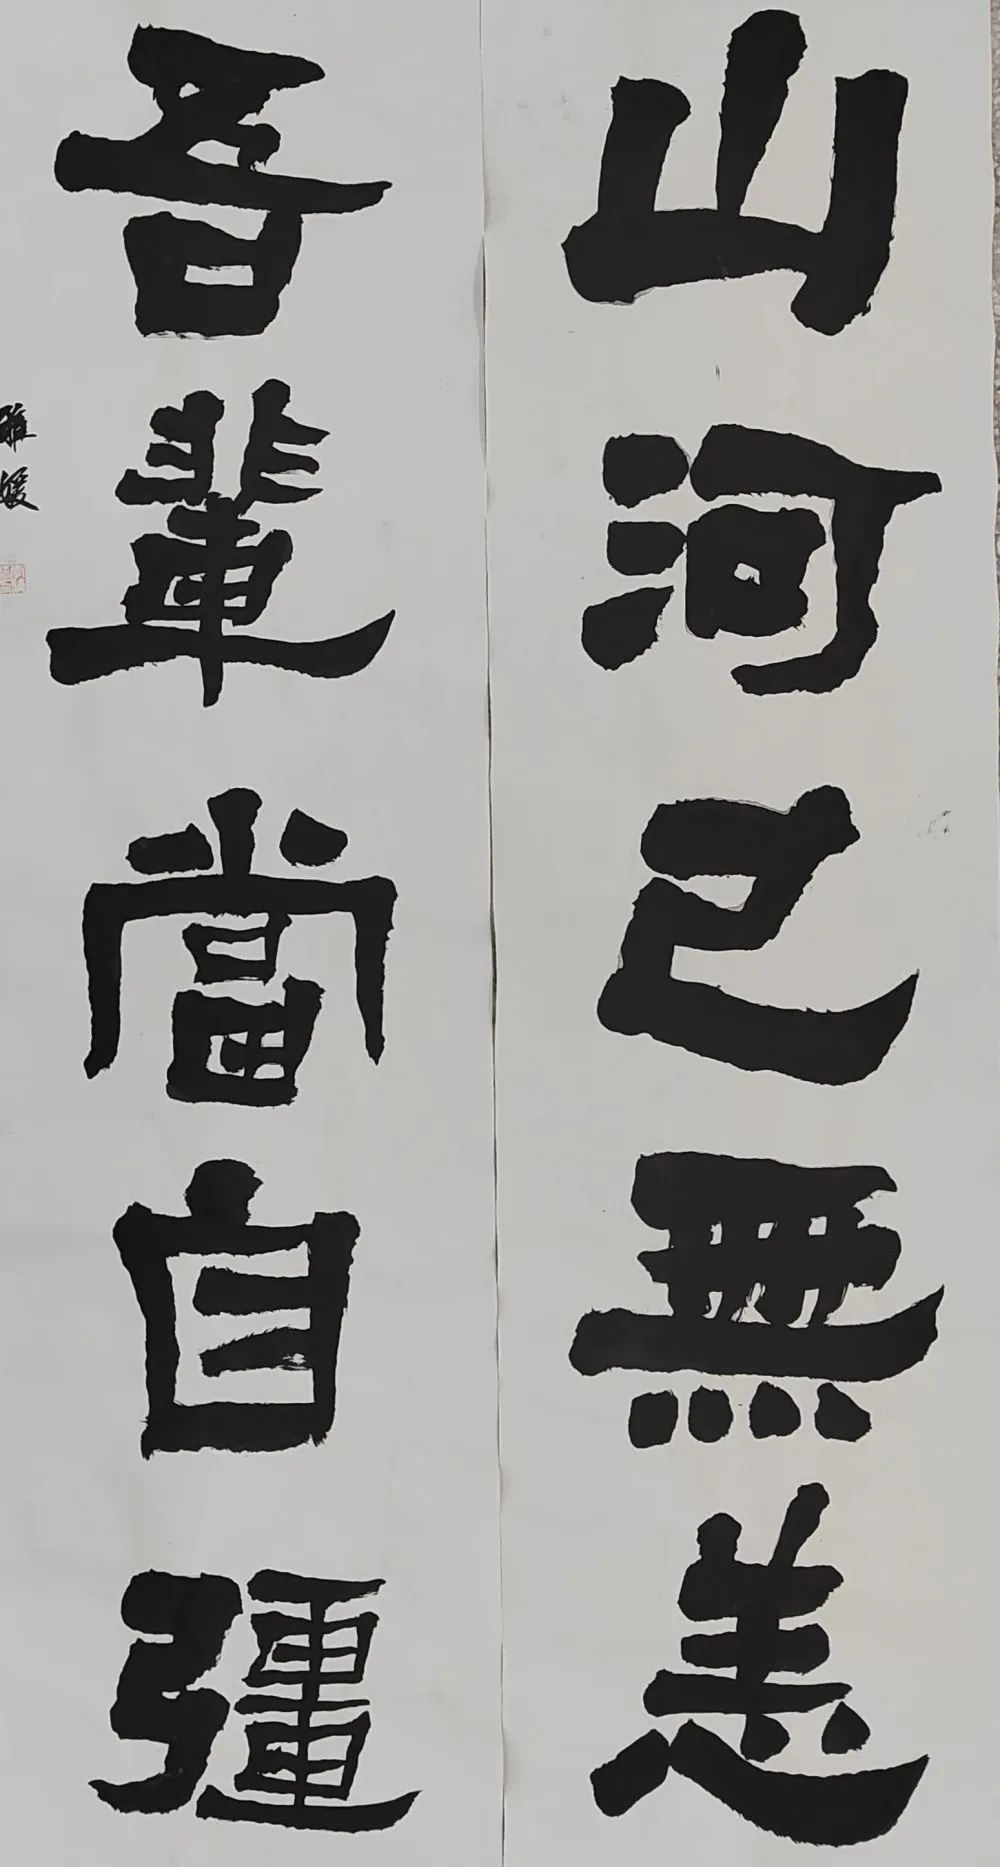 山河已無恙
吾輩當自彊
雅媛